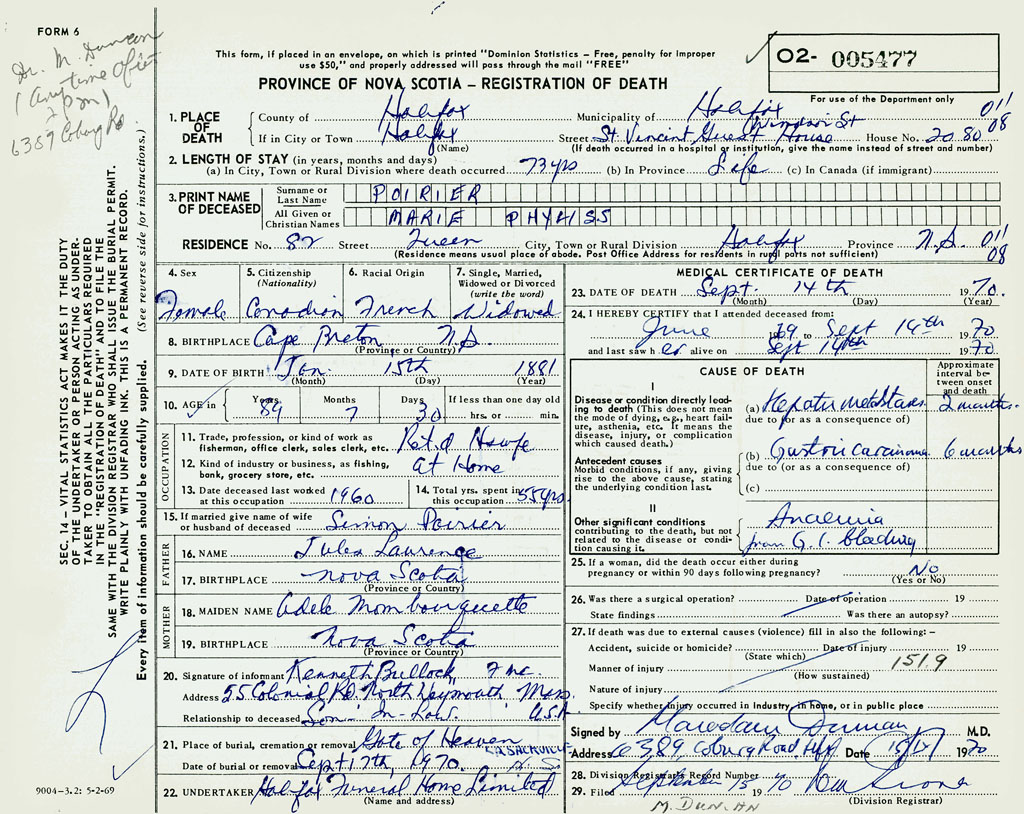 FORM 6
Dr. M. Duncan
(Anytime Office
2 pm)
6389 Coburg Rd
This form, if placed in an envelope, on which is printed "Dominion Statistics - Free, penalty for improper
use $50," and properly addressed will pass through the mail "FREE"
PROVINCE OF NOVA SCOTIA – REGISTRATION OF DEATH
02- 005477
For use of the Department only
011
08
1. PLACE OF DEATH
County of Halifax Municipality of Halifax
Windsor St
If in City or Town Halifax Street St. Vincent Guest House House No. 2080
(Name) (If death occurred in a hospital or institution, give the name instead of street and number)
2. LENGTH OF STAY (in years, months and days)
(a) In City, Town or Rural Division where death occurred 73 yrs (b) In Province Life (c) In Canada (if immigrant)
3. PRINT NAME OF DECEASED
Surname or Last Name POIRIER
All Given or Christian Names MARIE PHYLISS
RESIDENCE No. 82 Street Queen City, Town or Rural Division Halifax Province N.S. 011
(Residence means usual place of abode. Post Office Address for residents in rural parts not sufficient) 08
4. Sex Female
5. Citizenship (Nationality) Canadian
6. Racial Origin French
7. Single, Married, Widowed or Divorced (write the word) Widowed
8. BIRTHPLACE Cape Breton N.S.
(Province or Country)
9. DATE OF BIRTH Jan. 15th 1881
(Month) (Day) (Year)
10. AGE in Years 89 Months 7 Days 30 If less than one day old
hrs. or min.
OCCUPATION
11. Trade, profession, or kind of work as fisherman, office clerk, sales clerk, etc. Ret.d Hswfe
12. Kind of industry or business, as fishing, bank, grocery store, etc. At Home
13. Date deceased last worked at this occupation 1960
14. Total yrs. spent in this occupation 55 yrs
15. If married give name of wife or husband of deceased Simon Poirier
FATHER
16. NAME Jules Laurence
17. BIRTHPLACE Nova Scotia
(Province or Country)
MOTHER
18. MAIDEN NAME Adele Mombourquette
19. BIRTHPLACE Nova Scotia
(Province or Country)
20. Signature of informant Kenneth Bullock,
Address 55 Colonial Rd. North Weymouth Mass.
Relationship to deceased Son-In-Law. U.S.A.
21. Place of burial, cremation or removal Gate of Heaven
L. SACKVILLE
Date of burial or removal Sept 17th, 1970. N.S.
22. UNDERTAKER Halifax Funeral Home Limited
(Name and address)
MEDICAL CERTIFICATE OF DEATH
23. DATE OF DEATH Sept. 14th 1970.
(Month) (Day) (Year)
24. I HEREBY CERTIFY that I attended deceased from:
June 19 to Sept 14th 1970
and last saw her alive on Sept 14th 1970
CAUSE OF DEATH
Approximate interval between onset and death
I
Disease or condition directly leading to death (This does not mean the mode of dying, e.g., heart failure, asthenia, etc. It means the disease, injury, or complication which caused death.)
(a) Hepatic metastases 2 months.
due to (or as a consequence of)
Antecedent causes
Morbid conditions, if any, giving rise to the above cause, stating the underlying condition last.
(b) Gastric carcinoma 6 months
due to (or as a consequence of)
(c)
II
Other significant conditions contributing to the death, but not related to the disease or condition causing it.
Anaemia
from G.I. bleeding
25. If a woman, did the death occur either during pregnancy or within 90 days following pregnancy? No
(Yes or No)
26. Was there a surgical operation? Date of operation 19
State findings Was there an autopsy?
27. If death was due to external causes (violence) fill in also the following: –
Accident, suicide or homicide? Date of injury 19
(State which)
Manner of injury 1519
(How sustained)
Nature of injury
Specify whether injury occurred in industry, in home, or in public place
Signed by Duncan M.D.
Address 6389 Coburg Road Hfx Date 15/9/ 1970
28. Division Registrar's Record Number
29. Filed September 15 1970
(Division Registrar)
M. DUNCAN
SEC. 14 – VITAL STATISTICS ACT MAKES IT THE DUTY
OF THE UNDERTAKER OR PERSON ACTING AS UNDERTAKER TO OBTAIN ALL THE PARTICULARS REQUIRED
IN THE "REGISTRATION OF DEATH" AND TO FILE THE
SAME WITH THE DIVISION REGISTRAR WHO SHALL ISSUE THE BURIAL PERMIT.
WRITE PLAINLY WITH UNFADING INK. THIS IS A PERMANENT RECORD.
Every item of information should be carefully supplied. (See reverse side for instructions.)
9004-3.2: 5-2-69